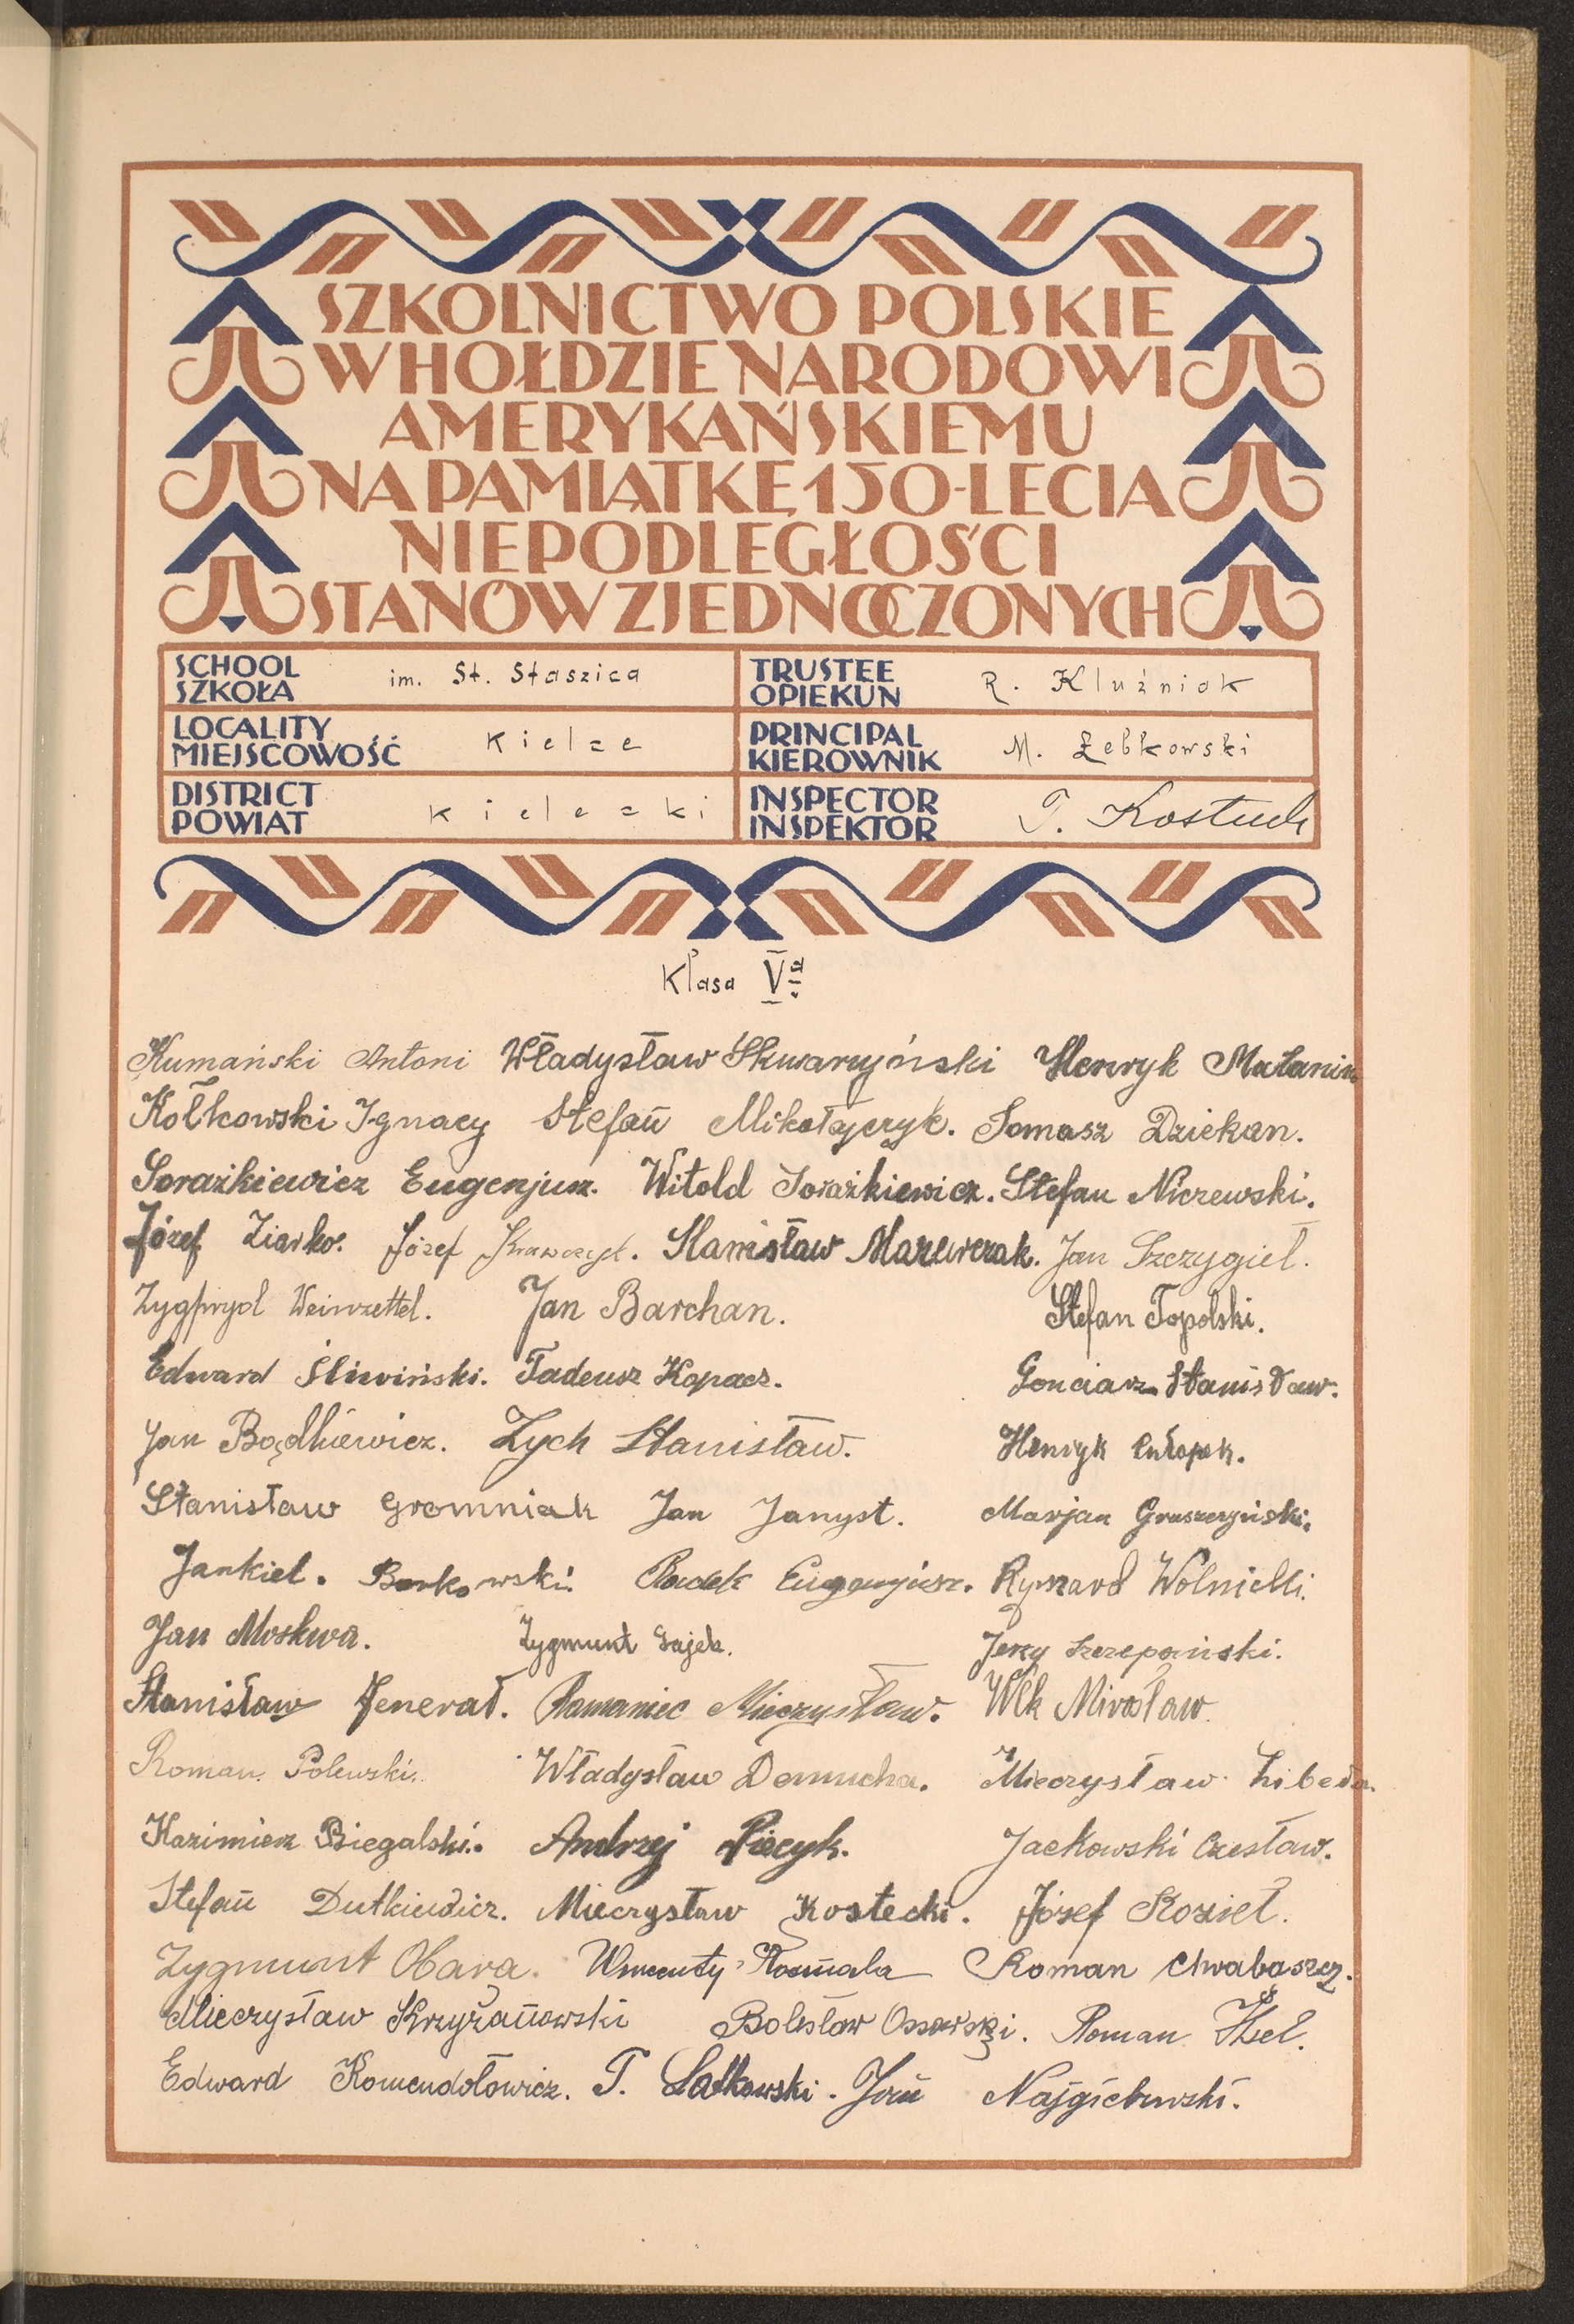 SZKOLNICTWO POLSKIE
W HOŁDZIE NARODOWI
AMERYKAŃSKIEMU
NA PAMIĄTKĘ 150-LECIA
NIEPODLEGŁOŚCI
STANÓW ZJEDNOCZONYCH
SCHOOL
SZKOŁA
im. St. Staszica
TRUSTEE
OPIEKUN
R. Kluźniak
LOCALITY
MIEJSCOWOŚĆ
Kielce
PRINCIPAL
KIEROWNIK
M. Łebkowski
DISTRICT
POWIAT
Kielecki
INSPECTOR
INSPEKTOR
T. Kostuch
Klasa Va
Kumański Antoni Władysław Skwarczyński Henryk
Kołkowski Ignacy Stefan Mikołajczyk. Tomasz Dziekan.
Sorażkiewicz Eugenjusz. Witold Sorażkiewicz. Stefan Niczewski.
Józef Ziarko. Józef Krawczyk. Stanisław Marewczak. Jan Szczygieł.
Zygfryd Weinzettel. Jan Barchan. Stefan Topolski.
Edward Śliwiński. Tadeusz Kopacz. Gonciarz Stanisław.
Jan Zych Stanisław. Henryk
Stanisław Gromniak Jan Janyst. Marjan Gruszczyński.
Jankiel. Borkowski. Eugenjusz. Ryszard Wolnicki.
Jan Moskwa. Zygmunt Gajek. Jerzy Szczepański.
Stanisław Jenerał. Romaniec Mieczysław. Wilk Mirosław.
Roman Polewski. Władysław Domucha. Mieczysław Libera.
Kazimierz Biegalski. Andrzej Piecyk. Jackowski Czesław.
Stefan Dutkiewicz. Mieczysław Kostecki. Józef Kozieł.
Zygmunt Obara. Wincenty Roman
Mieczysław Krzyżanowski Bolesław Ossowski. Roman
Edward Komendołowicz. T. Latkowski. Jan Najgiebowski.